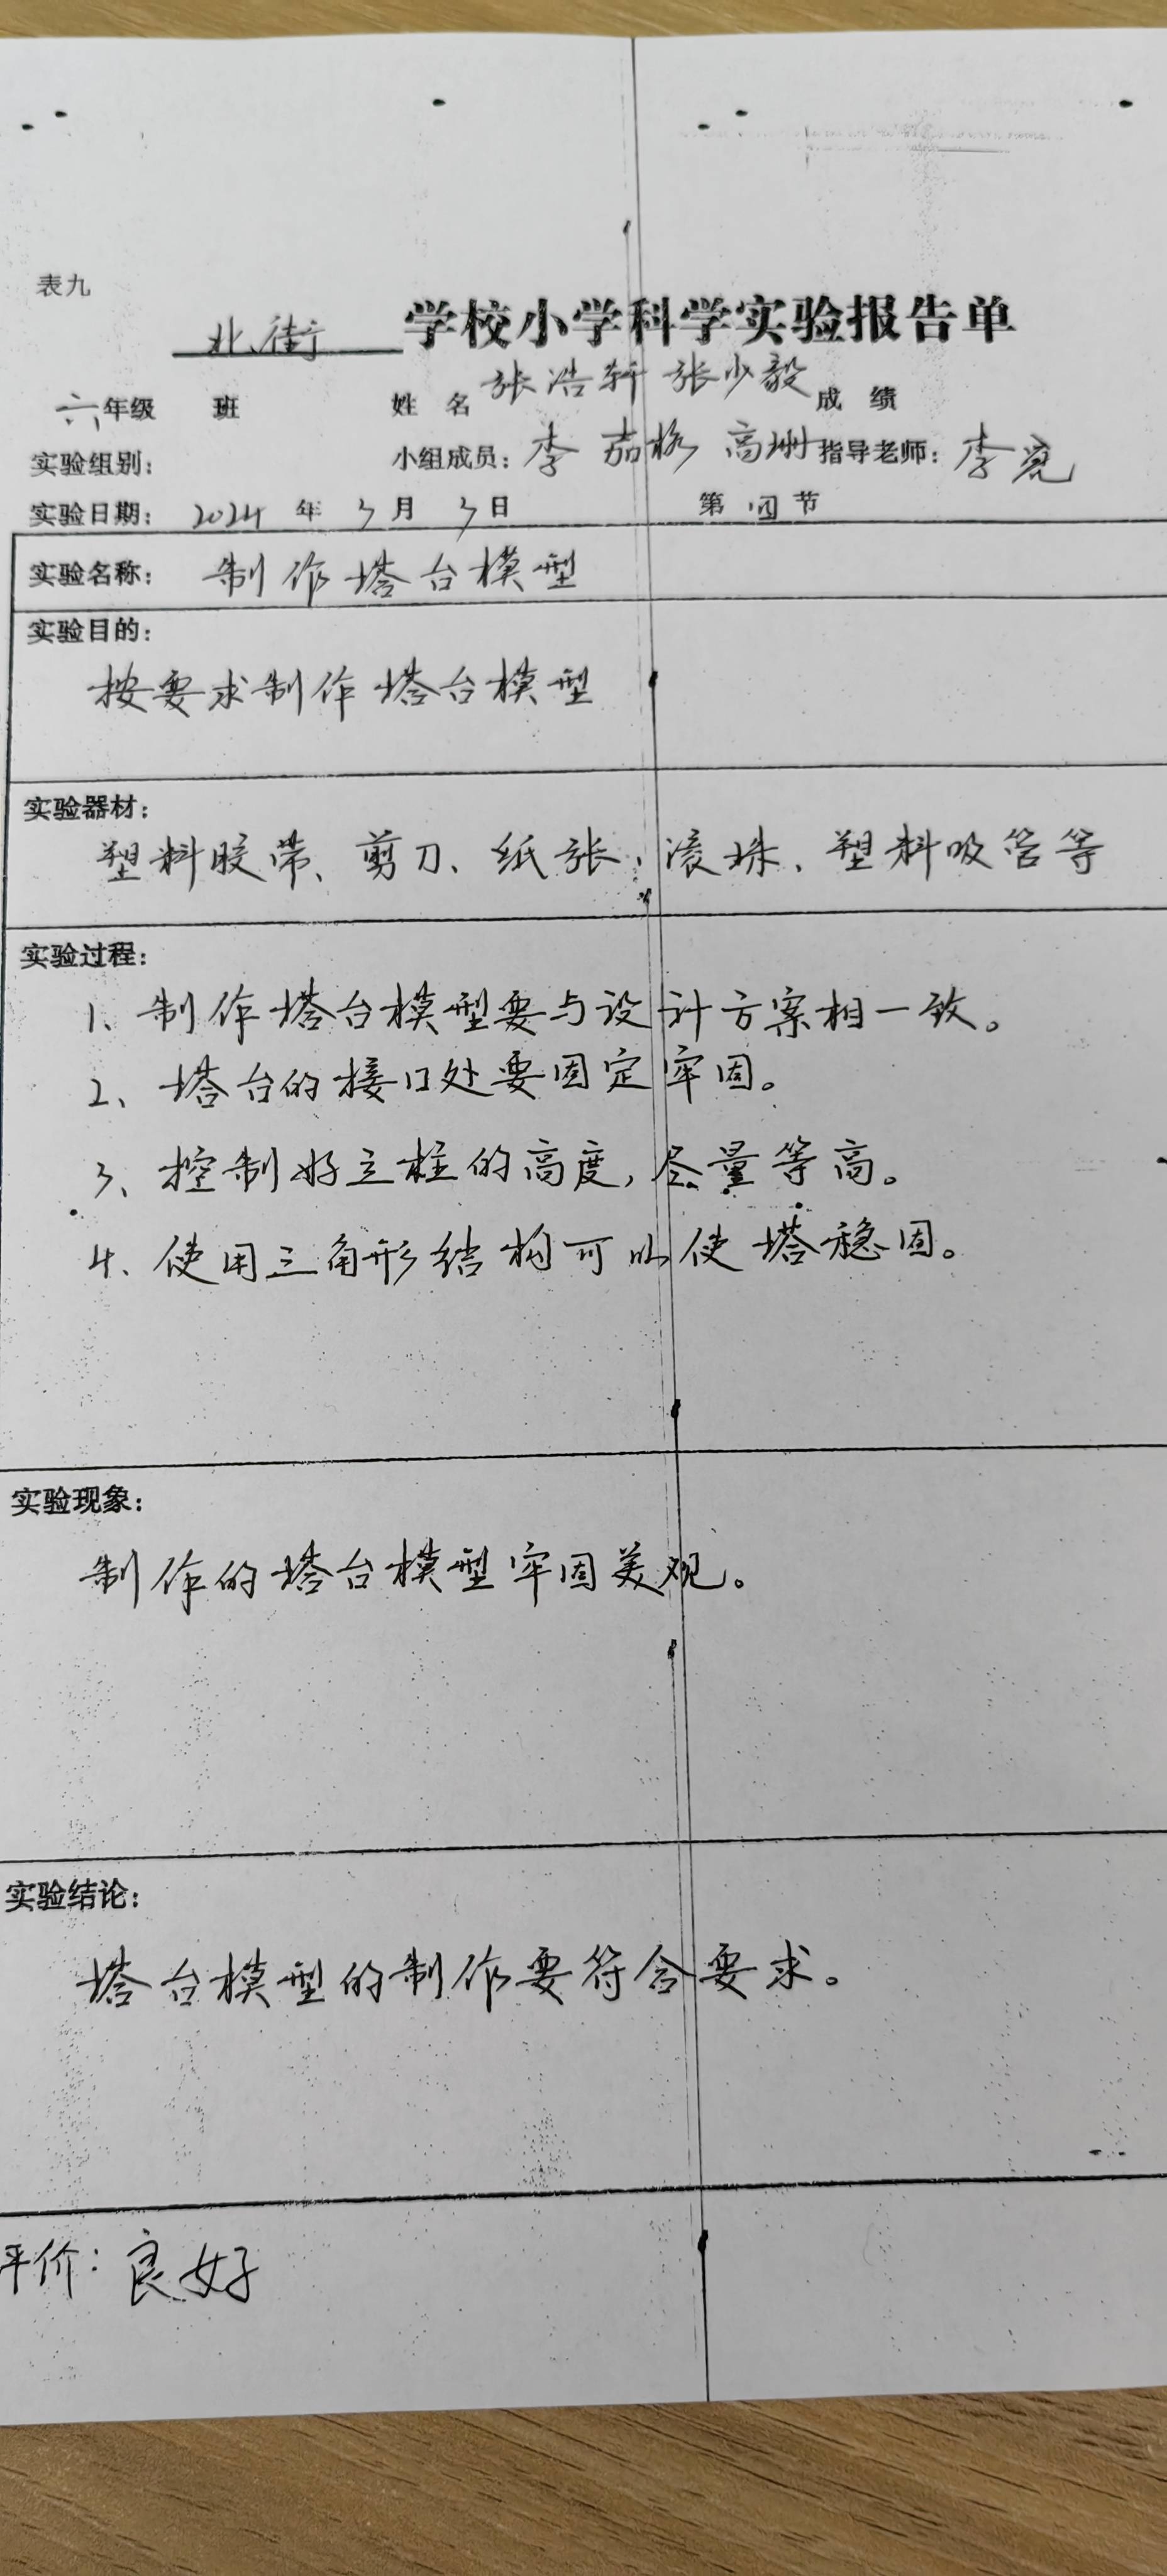 表九
北街 学校小学科学实验报告单
张浩轩 张少毅
六年级 班 姓 名 成 绩
实验组别： 小组成员：李茹格 高珊 指导老师：李亮
实验日期： 2024 年 3 月 3 日 第 四 节
实验名称： 制作塔台模型
实验目的：
按要求制作塔台模型
实验器材：
塑料胶带、剪刀、纸张、滚珠、塑料吸管等
实验过程：
1、制作塔台模型要与设计方案相一致。
2、塔台的接口处要固定牢固。
3、控制好立柱的高度,尽量等高。
4、使用三角形结构可以使塔稳固。
实验现象：
制作的塔台模型牢固美观。
实验结论：
塔台模型的制作要符合要求。
评价：良好